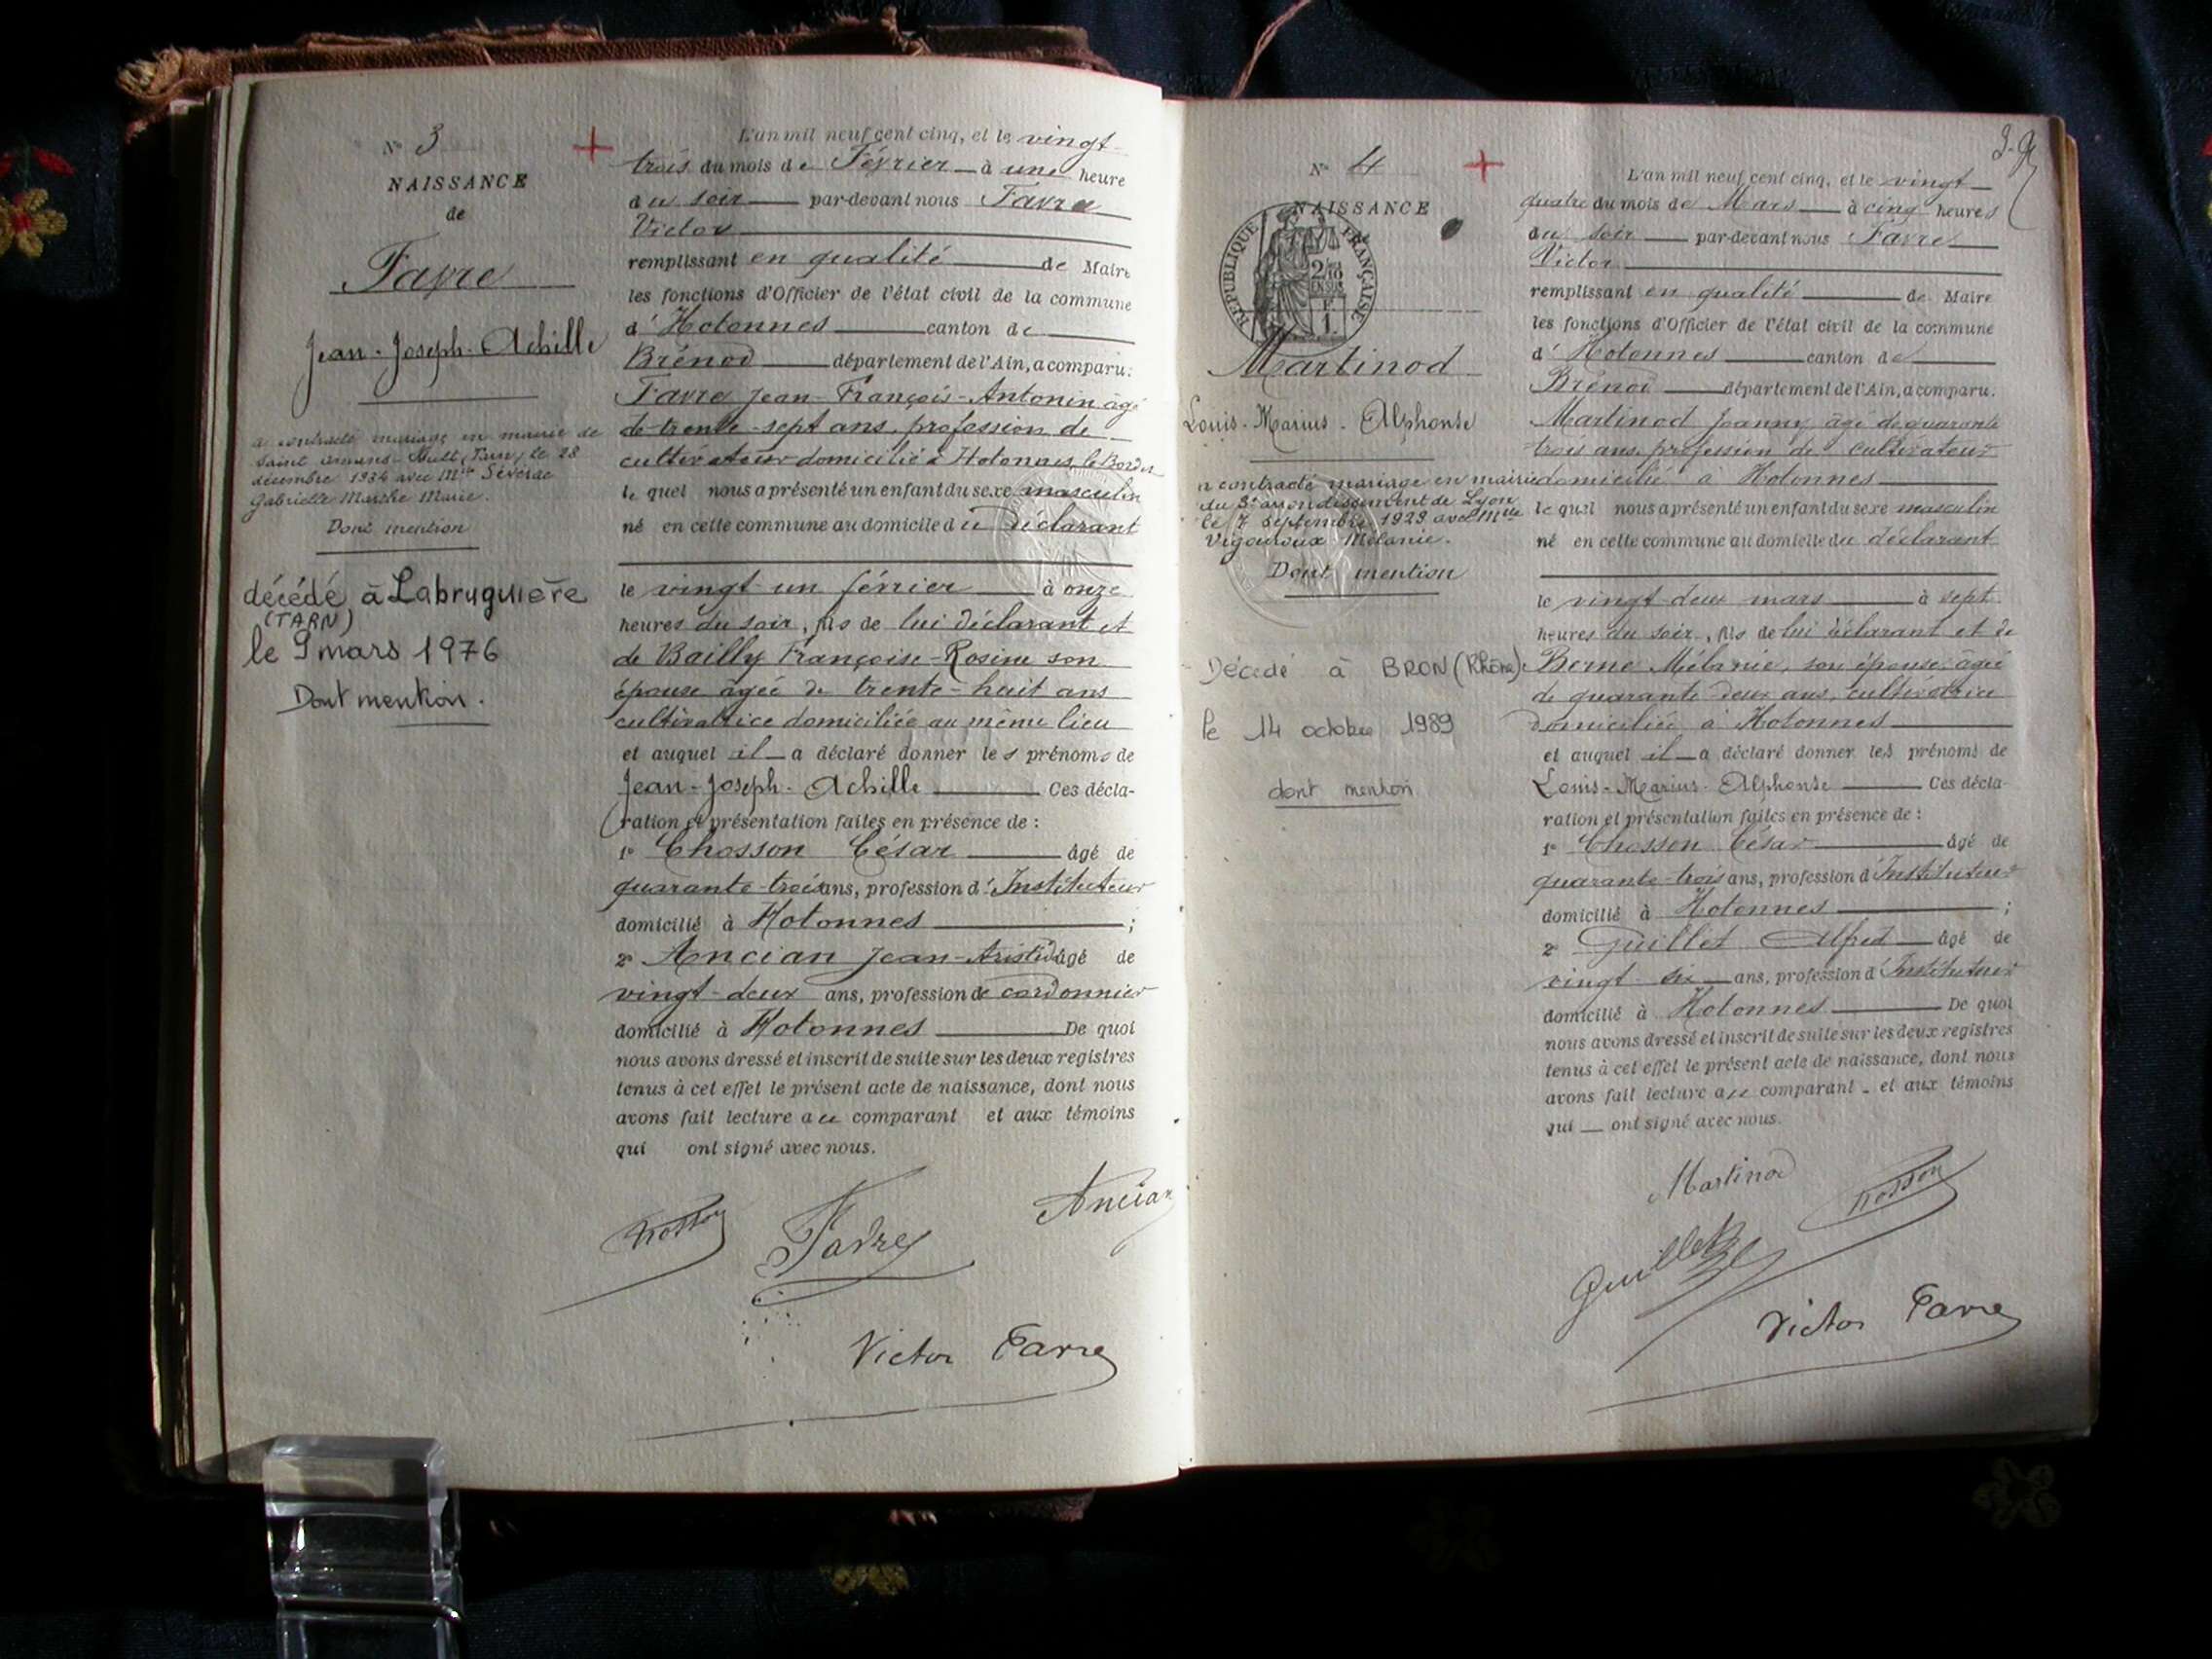 N° 3
NAISSANCE
de
Favre
Jean-Joseph-Achille
a contracté mariage en mairie de
Saint (Tarn) le 28
décembre 1934 avec Mlle Séverac
Gabrielle Marthe Marie.
Dont mention
décédé à Labruguière
(TARN)
le 9 mars 1976
Dont mention.
L'an mil neuf cent cinq, et le vingt-
trois du mois de Février à une heure
du soir par-devant nous Favre
Victor
remplissant en qualité de Maire
les fonctions d'Officier de l'état civil de la commune
d'Hotonnes canton de
Brénod département de l'Ain, a comparu:
Favre Jean-François-Antonin âgé
de trente-sept ans, profession de
cultivateur domicilié à Hotonnes, le
le quel nous a présenté un enfant du sexe masculin
né en cette commune au domicile du déclarant
le vingt-un février à onze
heures du soir, fils de lui déclarant et
de Bailly Françoise-Rosine son
épouse âgée de trente-huit ans
cultivatrice domiciliée au même lieu
et auquel il a déclaré donner les prénoms de
Jean-Joseph-Achille Ces décla-
ration et présentation faites en présence de :
1° Chosson César âgé de
quarante-trois ans, profession d'Instituteur
domicilié à Hotonnes ;
2° Ancian Jean-Aristide âgé de
vingt-deux ans, profession de cordonnier
domicilié à Hotonnes De quoi
nous avons dressé et inscrit de suite sur les deux registres
tenus à cet effet le présent acte de naissance, dont nous
avons fait lecture au comparant et aux témoins
qui ont signé avec nous.
Chosson Favre Ancian
Victor Favre
N° 4
NAISSANCE
RÉPUBLIQUE FRANÇAISE
2/10
EN SUS
1
Martinod
Louis-Marius-Alphonse
a contracté mariage en mairie
du 3e arrondissement de Lyon
le 7 septembre 1929 avec Mlle
Vigouroux Mélanie.
Dont mention
Décédé à BRON (Rhône)
le 14 octobre 1989
dont mention
L'an mil neuf cent cinq, et le vingt-
quatre du mois de Mars à cinq heures
du soir par-devant nous Favre
Victor
remplissant en qualité de Maire
les fonctions d'Officier de l'état civil de la commune
d'Hotonnes canton de
Brénod département de l'Ain, a comparu.
Martinod Joanny âgé de quarante
trois ans, profession de cultivateur
domicilié à Hotonnes
le quel nous a présenté un enfant du sexe masculin
né en cette commune au domicile du déclarant
le vingt-deux mars à sept
heures du soir, fils de lui déclarant et de
Berne Mélanie, son épouse, âgée
de quarante deux ans, cultivatrice
domiciliée à Hotonnes
et auquel il a déclaré donner les prénoms de
Louis-Marius-Alphonse Ces décla-
ration et présentation faites en présence de :
1° Chosson César âgé de
quarante-trois ans, profession d'Instituteur
domicilié à Hotonnes ;
2° Guillet Alfred âgé de
vingt-six ans, profession d'Instituteur
domicilié à Hotonnes De quoi
nous avons dressé et inscrit de suite sur les deux registres
tenus à cet effet le présent acte de naissance, dont nous
avons fait lecture au comparant et aux témoins
qui ont signé avec nous.
Martinod Chosson
Guillet
Victor Favre